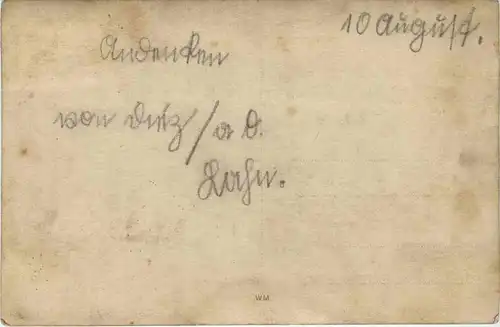 10 August.
Andenken
von Diez/a d.
Lahn.
WM